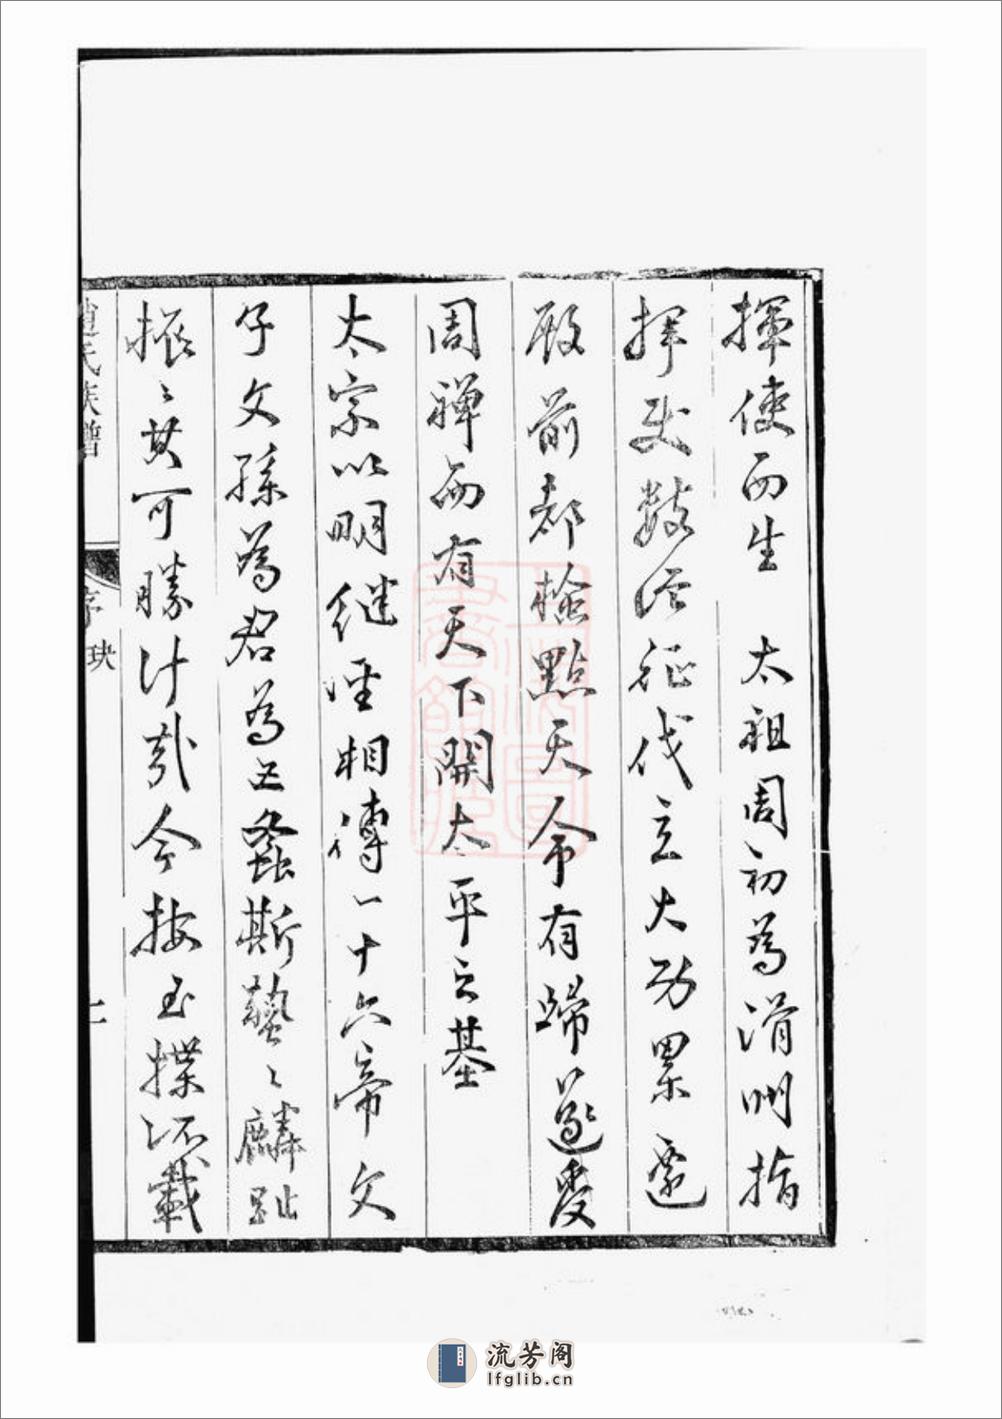 揮使而生　太祖周初為滑州指
揮使數從征伐立大功累遷
殿前都檢點天命有歸遂受
周禪而有天下開太平之基
太宗以明繼聖相傳一十六帝文
子文孫為君為王螽斯蟄〻麟趾
振〻其可勝計哉今按玉牒所載
趙氏族譜
序
玦
上海圖書館藏
流芳阁
lfglib.cn